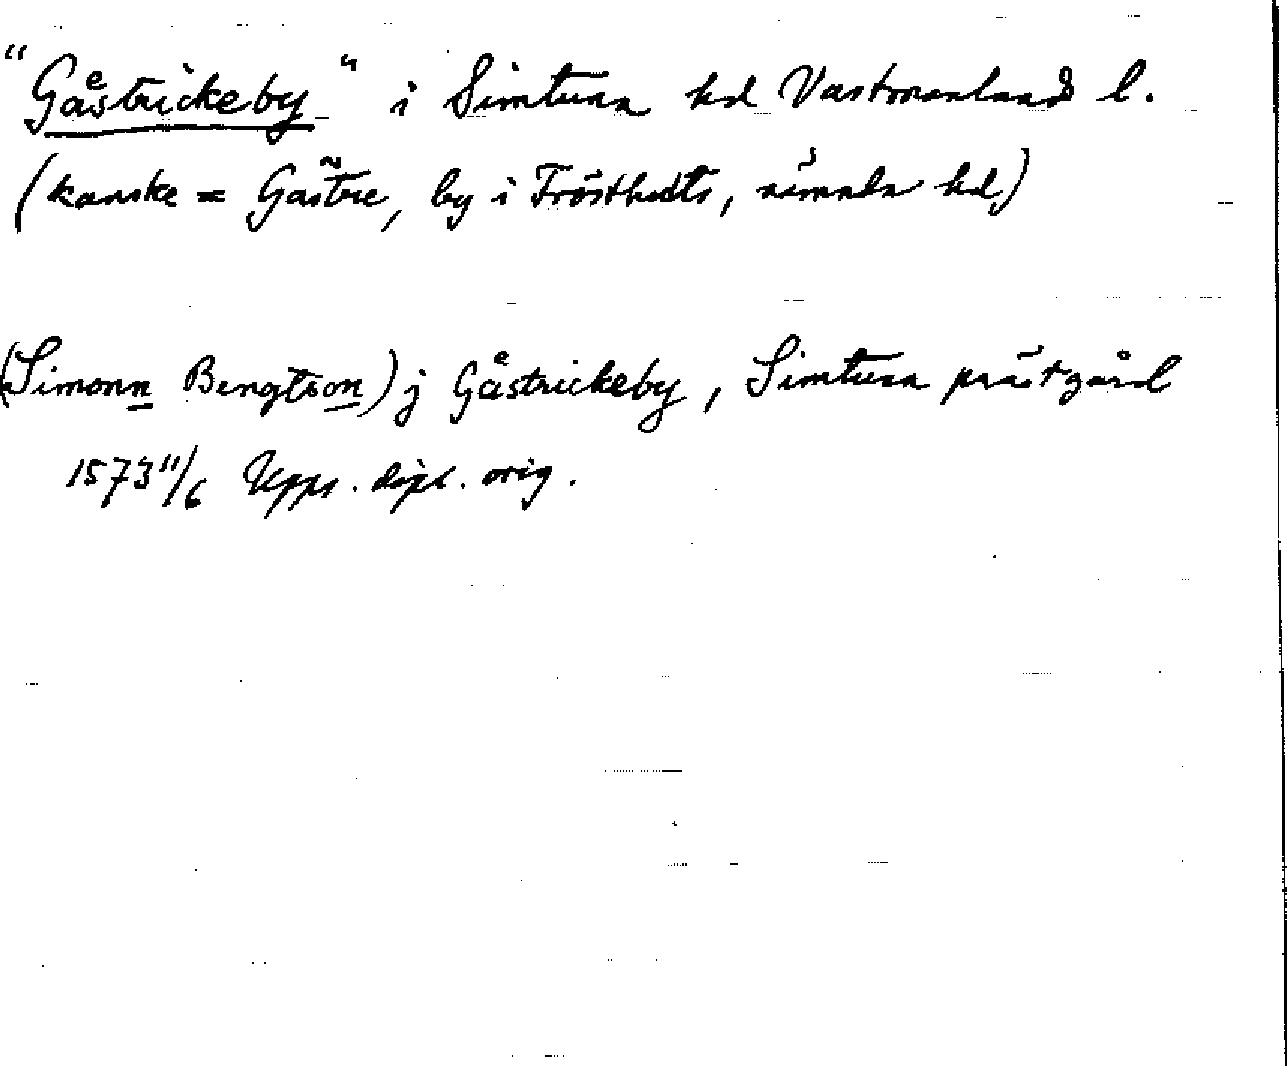 "Gaͤstrickeby" i Simtuna hd Västmanlands l.
(kanske = Gästre, by i Frösthults, nämnda hd)
(Simonn Bengtson) j Gaͤstrickeby, Simtuna prästgård
1573 11/6 Upps. dipl. orig.